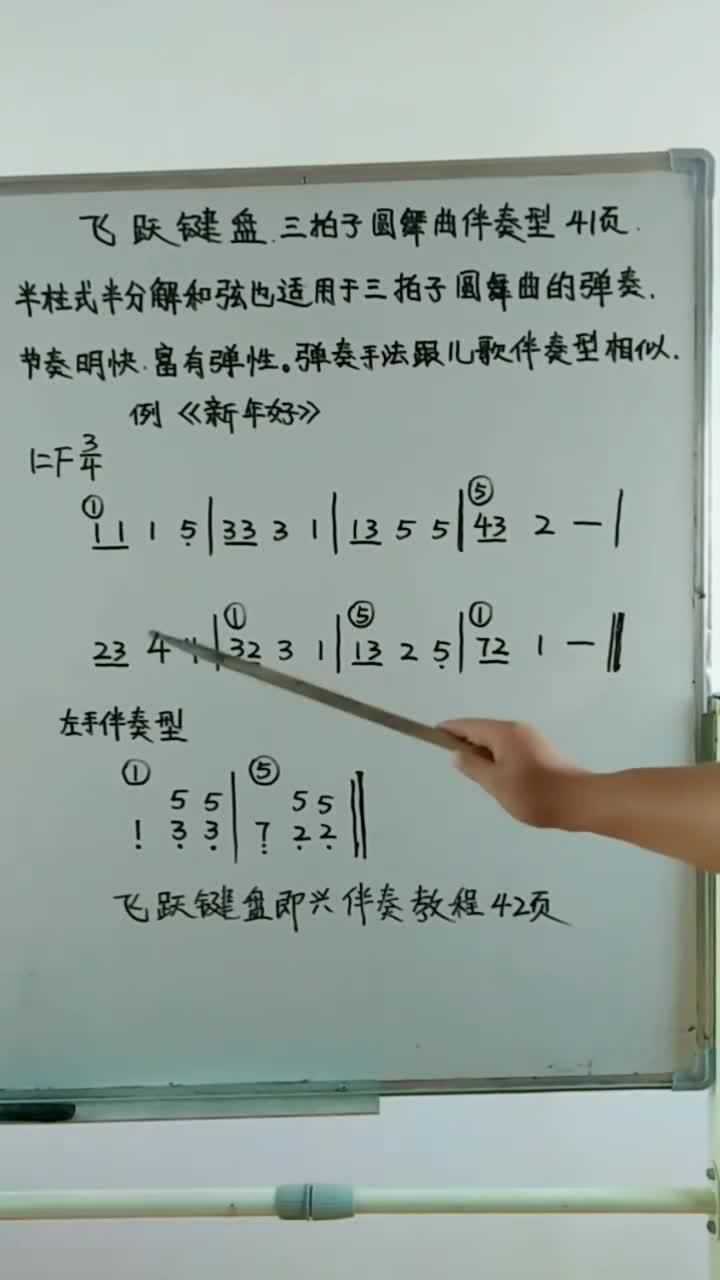 飞跃键盘.三拍子圆舞曲伴奏型 41页.
半柱式半分解和弦也适用于三拍子圆舞曲的弹奏.
节奏明快.富有弹性。弹奏手法跟儿歌伴奏型相似.
例《新年好》
1=F 3/4
① ⑤
11 1 5 | 33 3 1 | 13 5 5 | 43 2 — |
① ⑤ ①
23 4 4 | 32 3 1 | 13 2 5 | 72 1 — ‖
左手伴奏型
① ⑤
5 5 | 5 5
1 3 3 | 7 2 2 ‖
飞跃键盘即兴伴奏教程42页